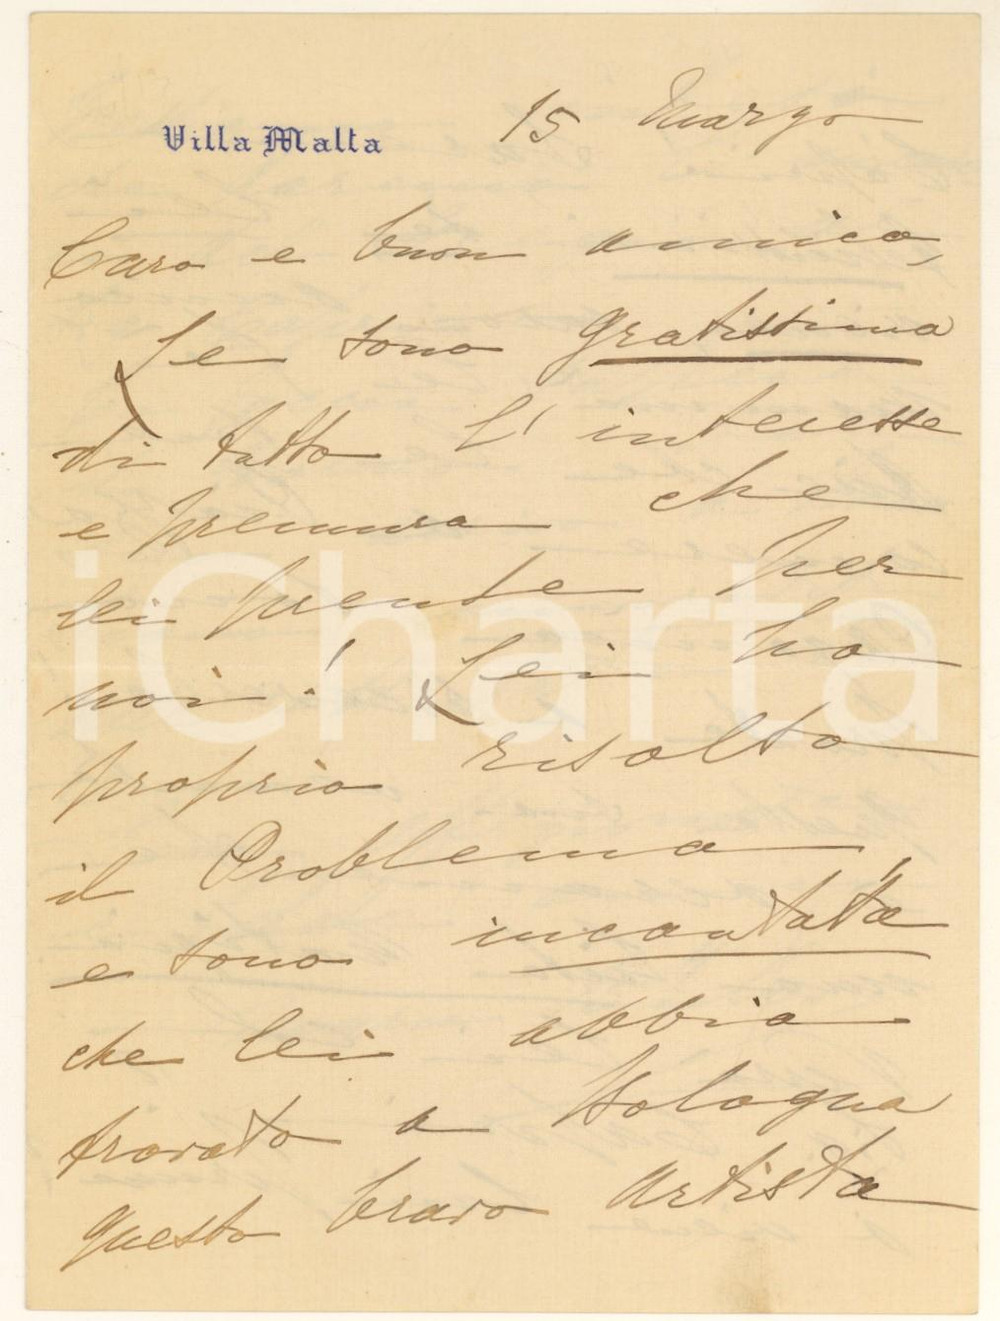 Villa Malta
15 Marzo
Caro e buon amico,
Le sono gratissima
di tutto l'interesse
e premura che
lei prende per
noi! Lei ha
proprio risolto
il Problema,
e sono incantata
che lei abbia
trovato a Bologna
questo bravo artista
iCharta